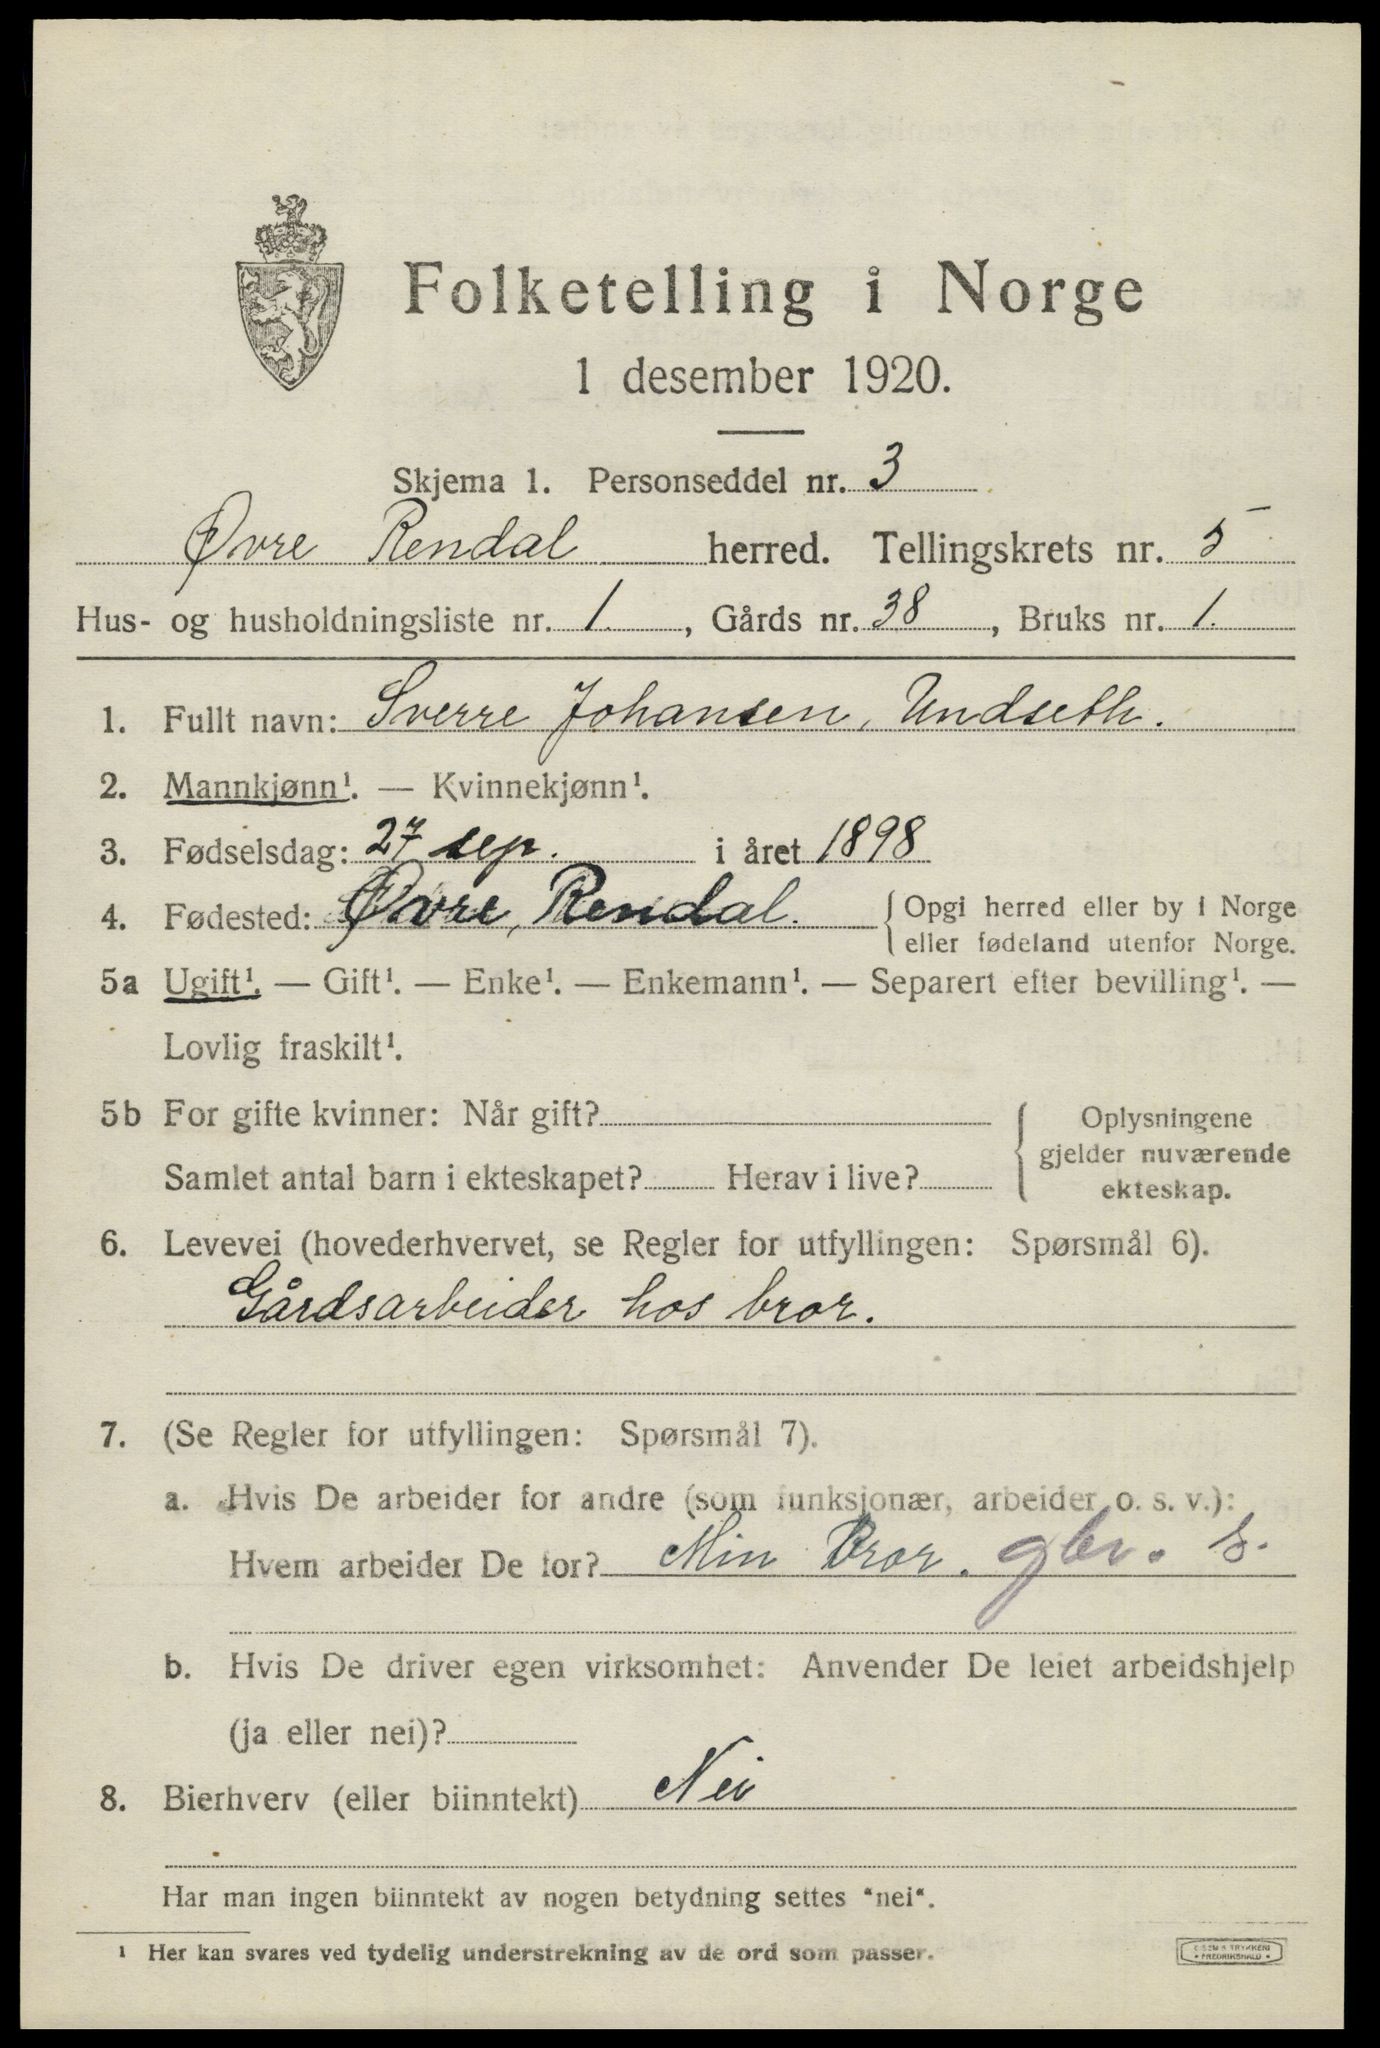 Folketelling i Norge
1 desember 1920.
Skjema 1. Personseddel nr. 3
Øvre Rendal herred. Tellingskrets nr. 5
Hus- og husholdningsliste nr. 1., Gårds nr. 38, Bruks nr. 1.
1. Fullt navn: Sverre Johansen, Undseth.
2. Mannkjønn¹. — Kvinnekjønn¹.
3. Fødselsdag: 27 sep. i året 1898
4. Fødested: Øvre, Rendal. { Opgi herred eller by i Norge
eller fødeland utenfor Norge.
5a Ugift¹. — Gift¹. — Enke¹. — Enkemann¹. — Separert efter bevilling¹. —
Lovlig fraskilt¹.
5b For gifte kvinner: Når gift? { Oplysningene
gjelder nuværende
Samlet antal barn i ekteskapet? Herav i live? ekteskap.
6. Levevei (hovederhvervet, se Regler for utfyllingen: Spørsmål 6).
Gårdsarbeider hos bror.
7. (Se Regler for utfyllingen: Spørsmål 7).
a. Hvis De arbeider for andre (som funksjonær, arbeider o. s. v.):
Hvem arbeider De for? Min Bror. gbr. s.
b. Hvis De driver egen virksomhet: Anvender De leiet arbeidshjelp
(ja eller nei)?
8. Bierhverv (eller biinntekt) Nei
Har man ingen biinntekt av nogen betydning settes "nei".
¹ Her kan svares ved tydelig understrekning av de ord som passer.
TRYKKERI
• FREDRIKSHALD •